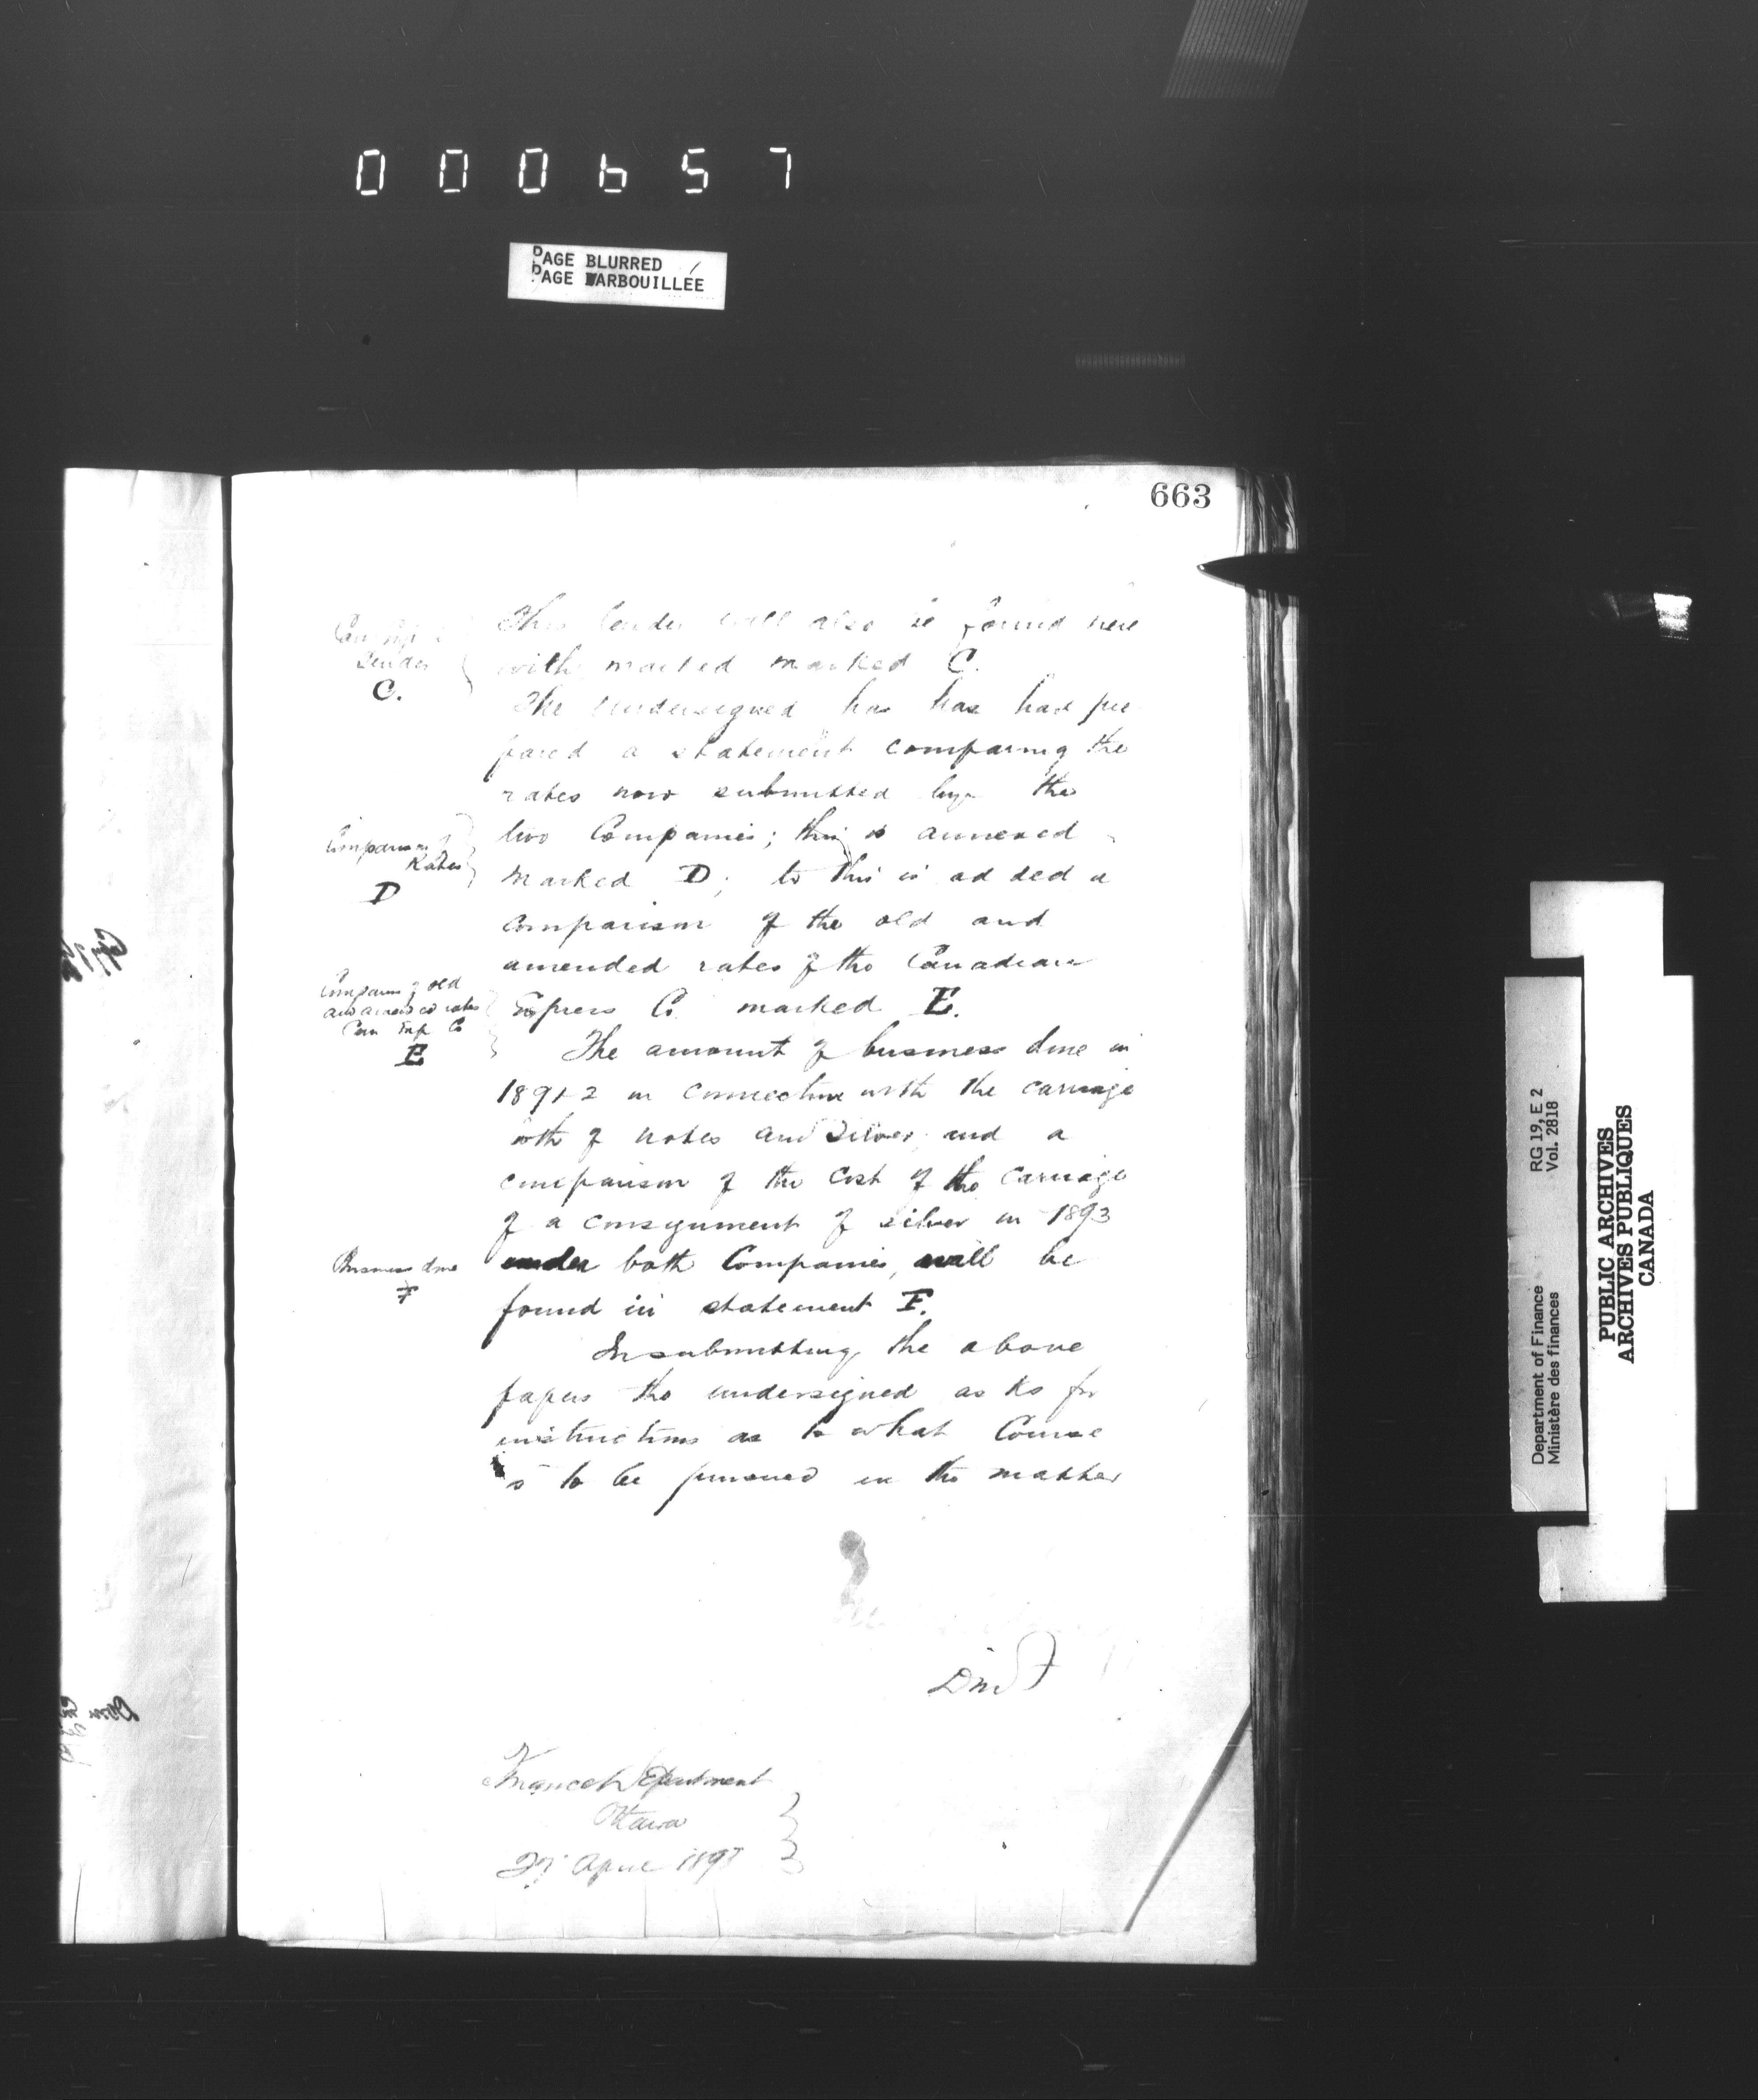 000657
PAGE BLURRED
PAGE BARBOUILLÉE
663
This tender will also be found here
with marked marked C.
The undersigned has has had pre
pared a statement comparing the
rates now submitted by the
two Companies; this is annexed
marked D; to this is added a
comparison of the old and
amended rates of the Canadian
Express Co. marked E.
The amount of business done in
1891-2 in connection with the carriage
both of notes and silver, and a
comparison of the cost of the carriage
of a consignment of silver in 1893
under both Companies, will be
found in statement F.
In submitting the above
papers the undersigned asks for
instructions as to what Course
is to be pursued in the matter
Tender
C.
Comparison of
Rates
D
Comparison of old
and amended rates
Can Exp Co
E
Business done
F
Finance Department
Ottawa
27 April 189
Department of Finance RG 19, E 2
Ministère des finances Vol. 2818
PUBLIC ARCHIVES
ARCHIVES PUBLIQUES
CANADA